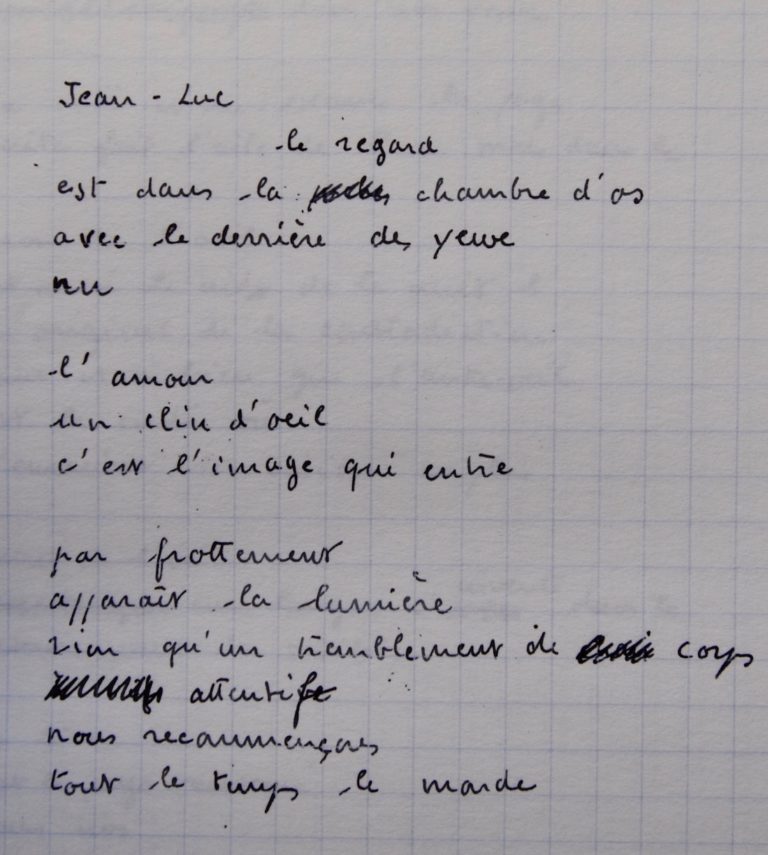 Jean-Luc
le regard
est dans la chambre d'os
avec le derrière des yeux
nu
l'amour
un clin d'oeil
c'est l'image qui entre
par frottement
apparaît la lumière
rien qu'un tremblement de corps
attentif
nous recommençons
tout le temps le monde